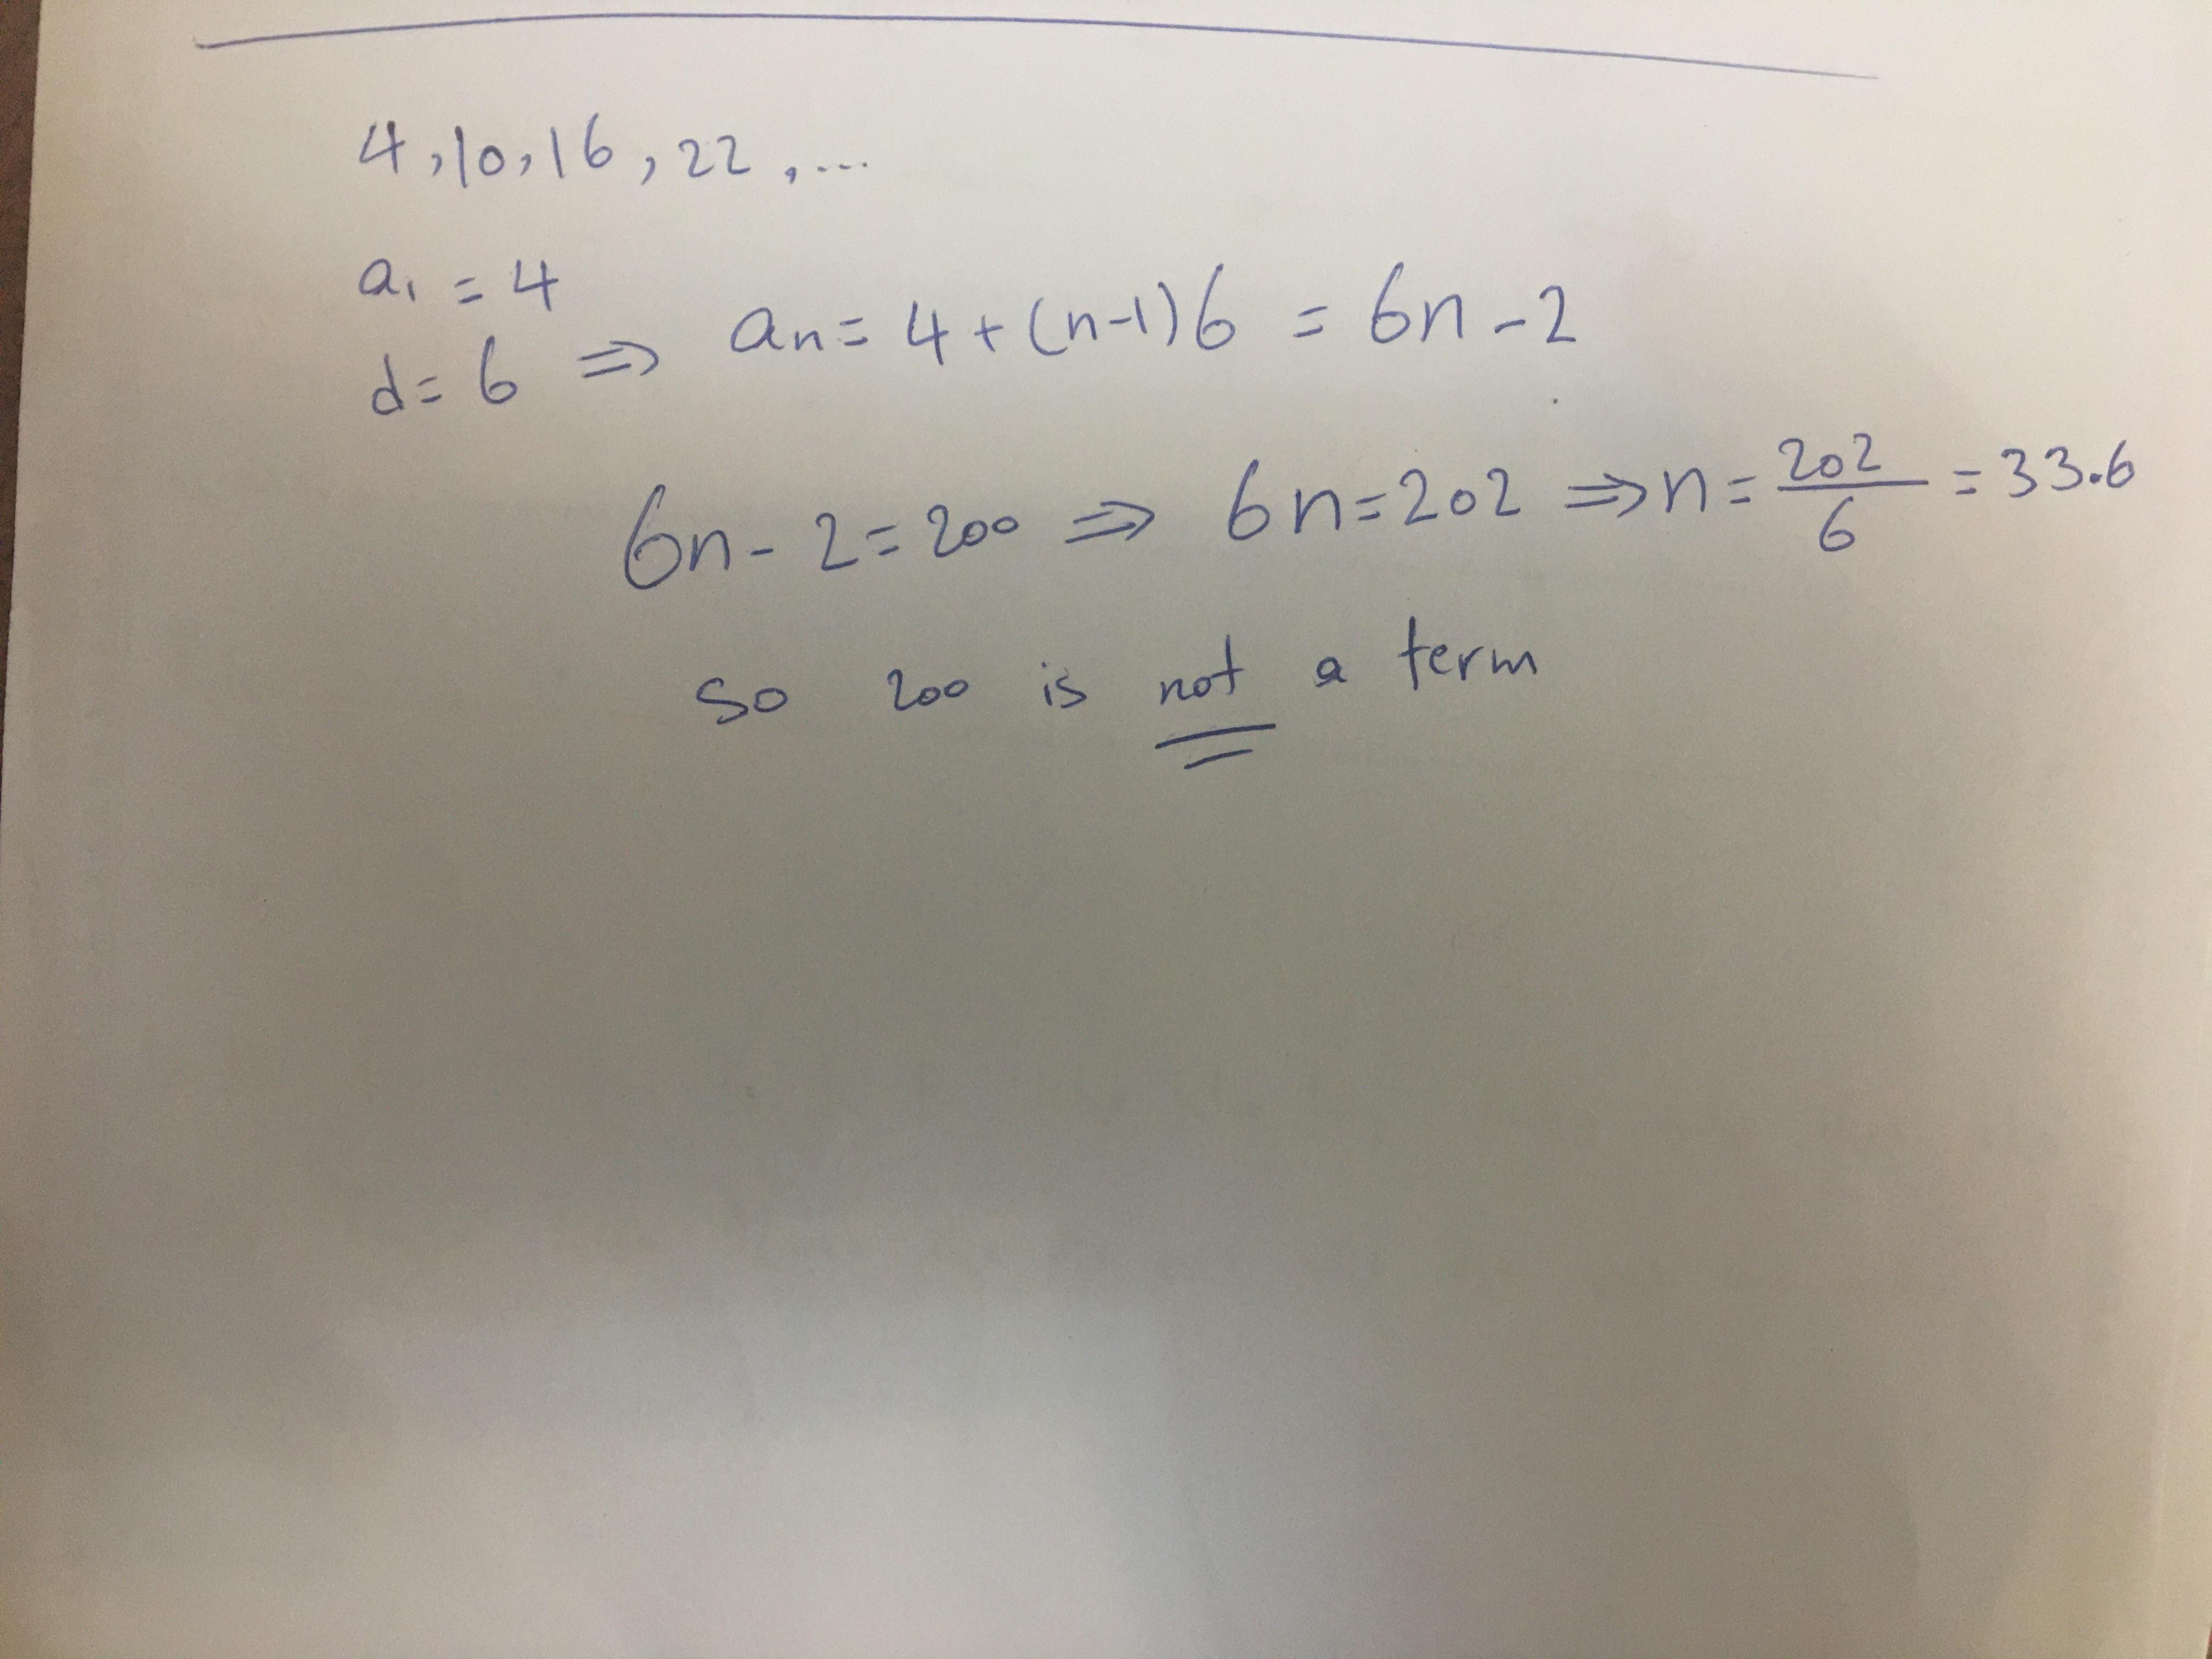 4, 10, 16, 22, ...
a₁ = 4
d = 6 ⇒ aₙ = 4 + (n-1)6 = 6n - 2
6n - 2 = 200 ⇒ 6n = 202 ⇒ n = 202/6 = 33.6
so 200 is not a term